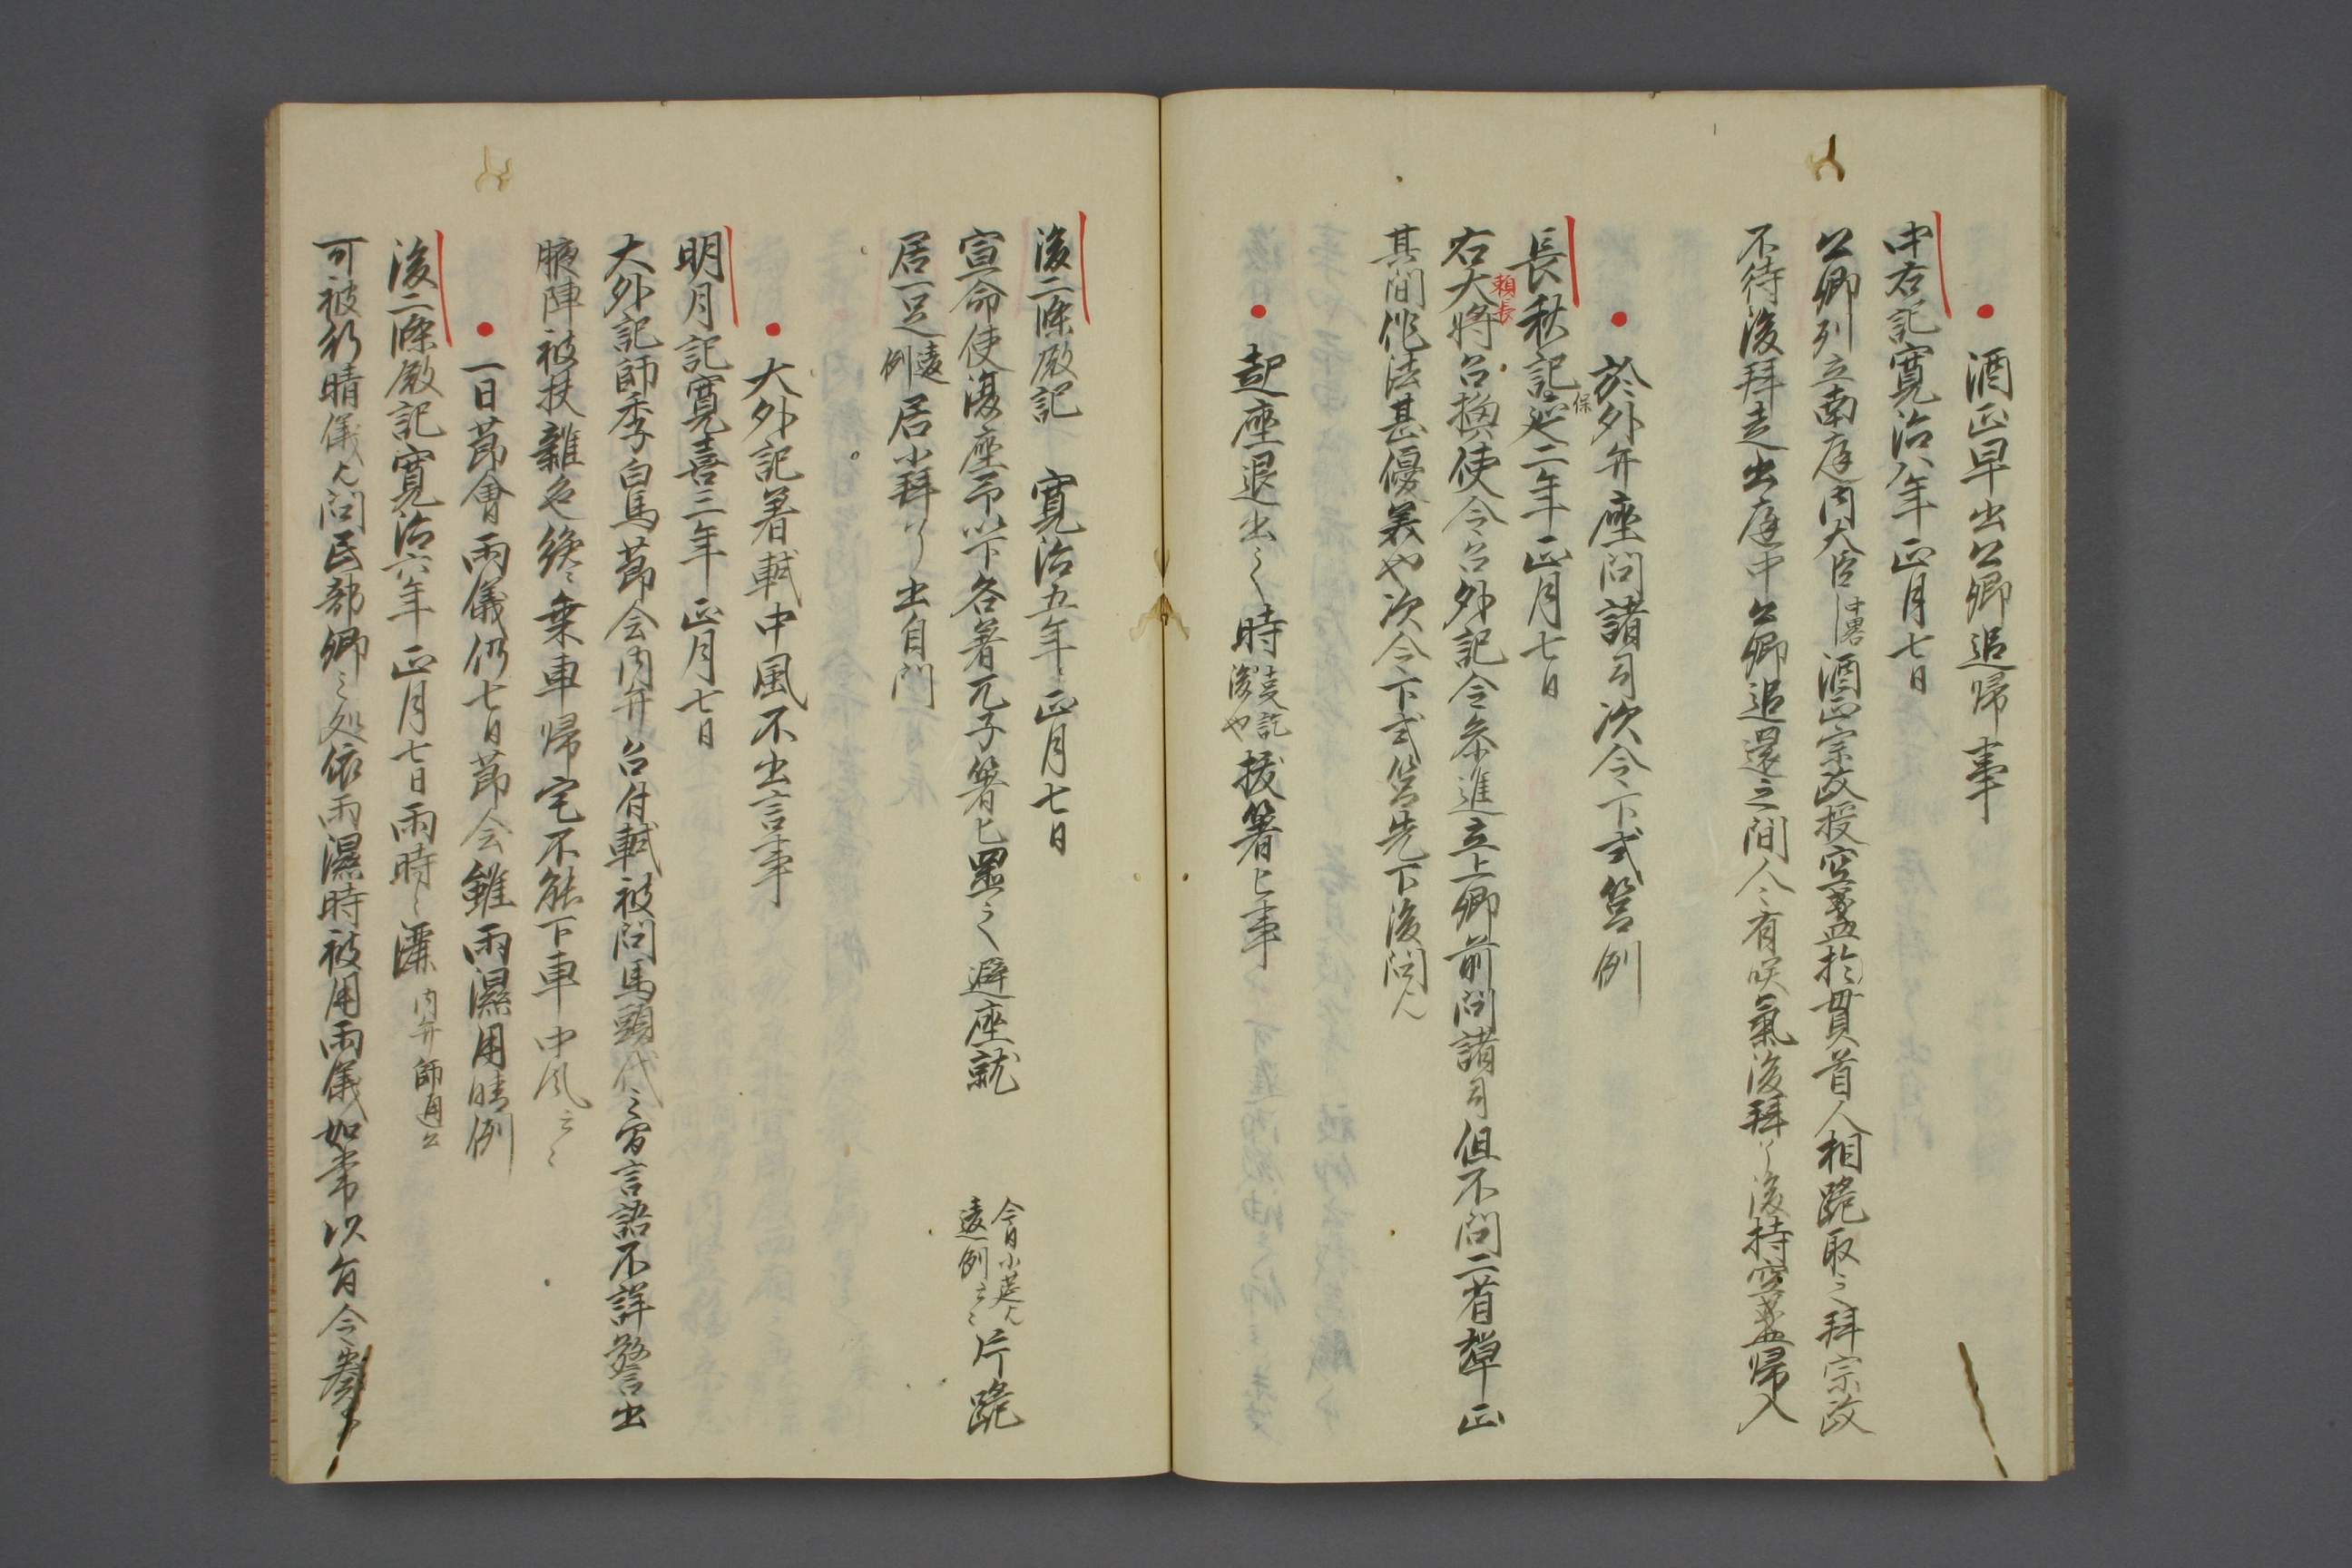 酒正早出公卿追帰事
中右記寛治八年正月七日
公卿列立南庭内大臣酒正宗政授空盞於貫首人相跪取之拜宗政
不待後拜走出庭中公卿追還之間人々有咲氣後拜了後持空盞帰入
於外弁座問諸司次令下式筥例
長秋記保延二年正月七日
右大将頼長召換使令召外記令参進立上卿前問諸司但不問二省弾正
其間作法甚優美也次令下式筥先下後問云
起座退出之時拔箸匕事
後二條殿記 寛治五年正月七日
宣命使復座予以下各着兀子箸匕置之避座就
今日小莚
違例云々片跪
居一足違例居小拜了出自門
大外記著軾中風不出言事
明月記寛喜三年正月七日
大外記師季白馬節会内弁召付軾被問馬頭代之間言語不詳警出
腋陣被扶雑色纔乗車帰宅不能下車中風云々
一日節會雨儀仍七日節会雖雨濕用晴例
後二條殿記寛治六年正月七日雨時々灑内弁師通公
可被行晴儀之問民部卿之処依雨濕時被用雨儀如常以有令奏